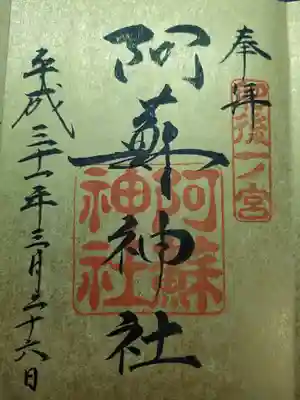 奉拝
肥後一ノ宮
阿蘇神社
阿蘇神社
平成三十一年三月二十六日